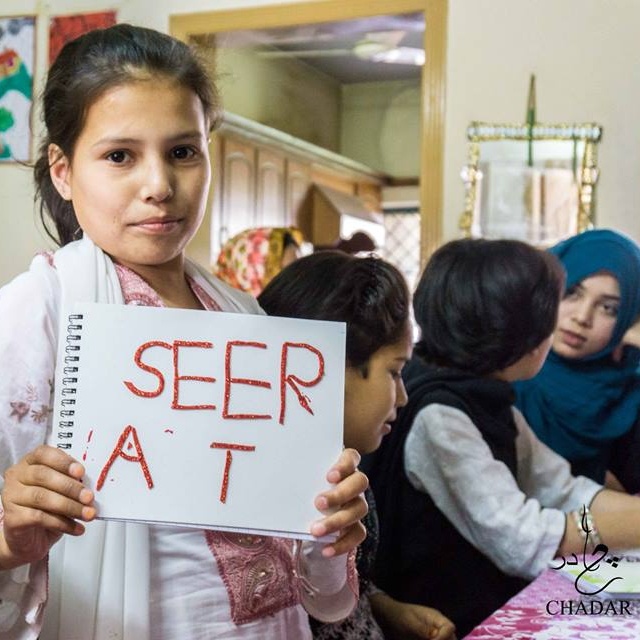 SEER
A T
چادر
CHADAR